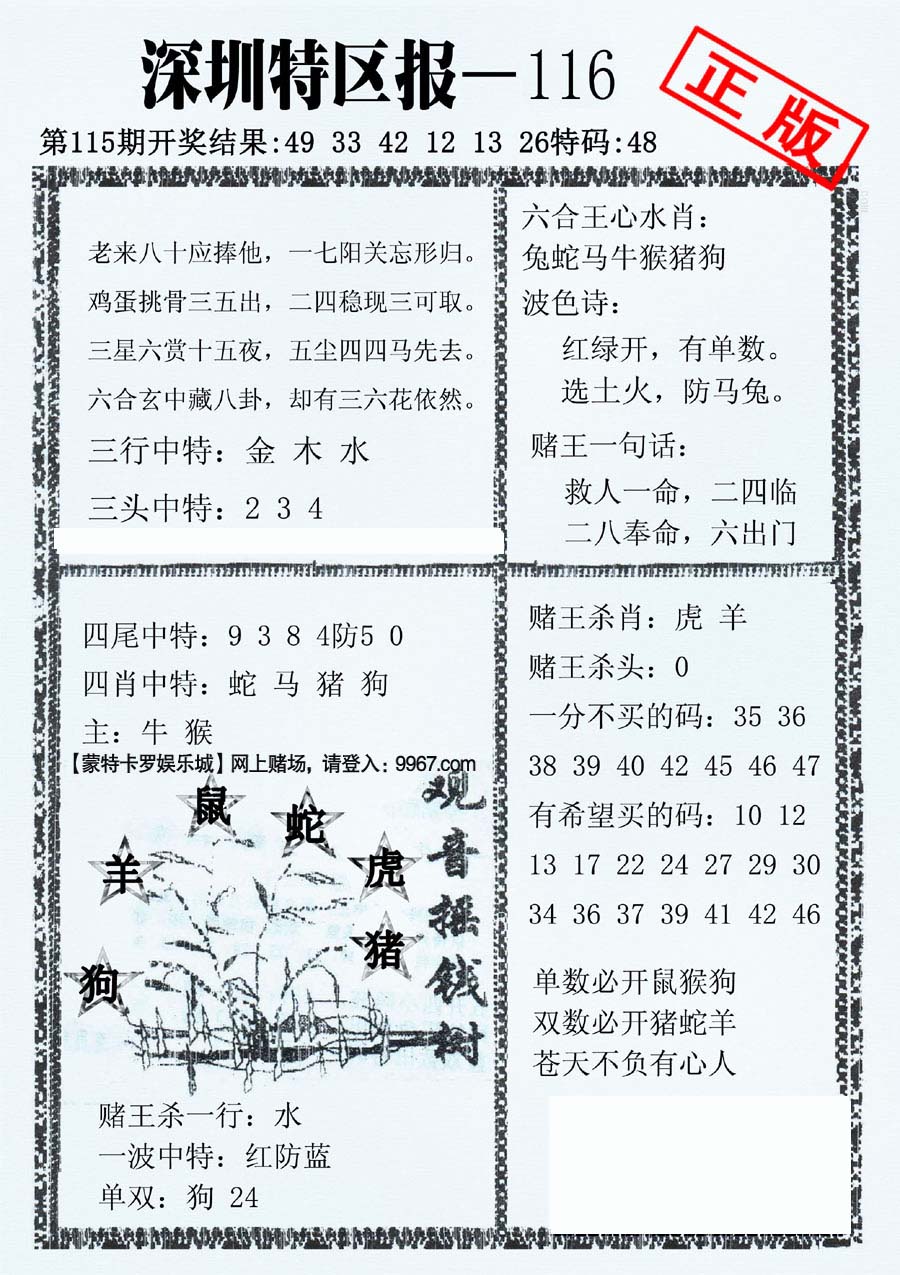 深圳特区报—116
正版
第115期开奖结果:49 33 42 12 13 26特码:48
老来八十应捧他，一七阳关忘形归。
鸡蛋挑骨三五出，二四稳现三可取。
三星六赏十五夜，五尘四四马先去。
六合玄中藏八卦，却有三六花依然。
三行中特：金 木 水
三头中特：2 3 4
六合王心水肖：
兔蛇马牛猴猪狗
波色诗：
红绿开，有单数。
选土火，防马兔。
赌王一句话：
救人一命，二四临
二八奉命，六出门
四尾中特：9 3 8 4防5 0
四肖中特：蛇 马 猪 狗
主：牛 猴
【蒙特卡罗娱乐城】网上赌场，请登入：9967.com
观音摇钱树
鼠
蛇
羊
虎
猪
狗
赌王杀一行：水
一波中特：红防蓝
单双：狗 24
赌王杀肖：虎 羊
赌王杀头：0
一分不买的码：35 36
38 39 40 42 45 46 47
有希望买的码：10 12
13 17 22 24 27 29 30
34 36 37 39 41 42 46
单数必开鼠猴狗
双数必开猪蛇羊
苍天不负有心人